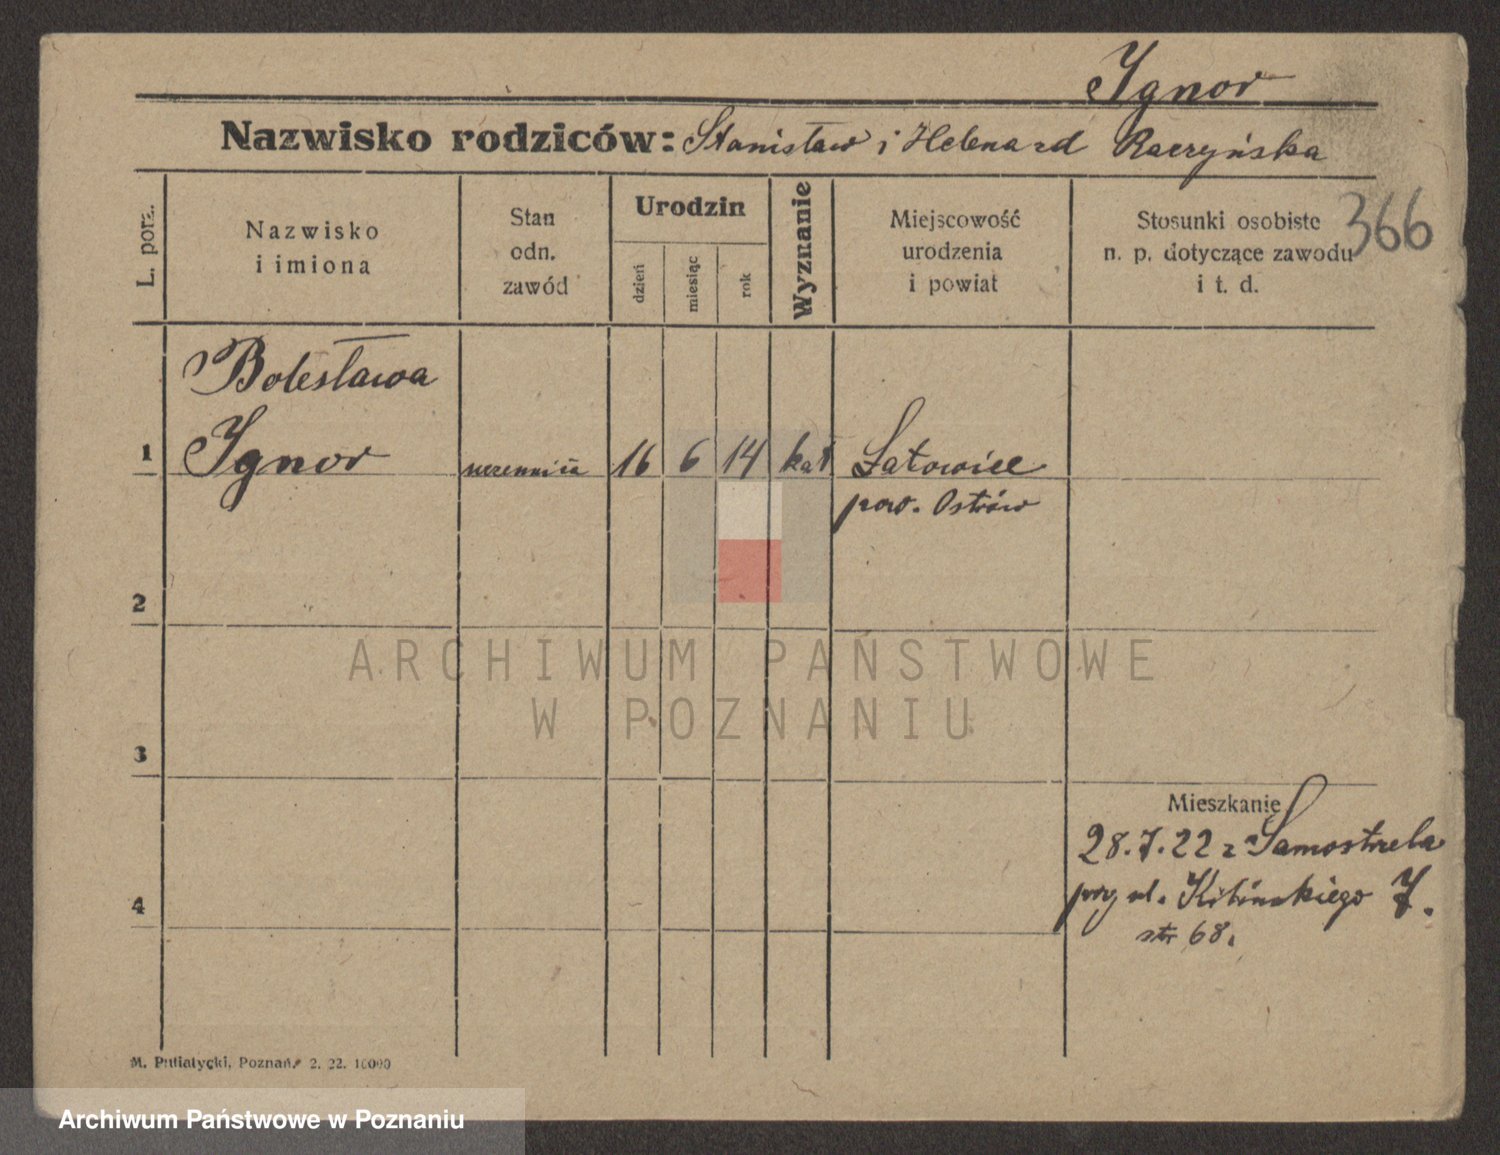 Ignor
Nazwisko rodziców: Stanisław i Helena zd Raczyńska
366
L. porz.
Nazwisko
i imiona
Stan
odn.
zawód
Urodzin
dzień
miesiąc
rok
Wyznanie
Miejscowość
urodzenia
i powiat
Stosunki osobiste
n. p. dotyczące zawodu
i t. d.
Bolesława
1 Ignor uczennica 16 6 14 kat Łatowice
pow. Ostrów
2
ARCHIWUM PAŃSTWOWE
W POZNANIU
3
Mieszkanie
28.7.22 z Samostrzela
przy ul. Kilińskiego 7.
4
str 68.
M. Putiatycki, Poznań. 2. 22. 10000
Archiwum Państwowe w Poznaniu